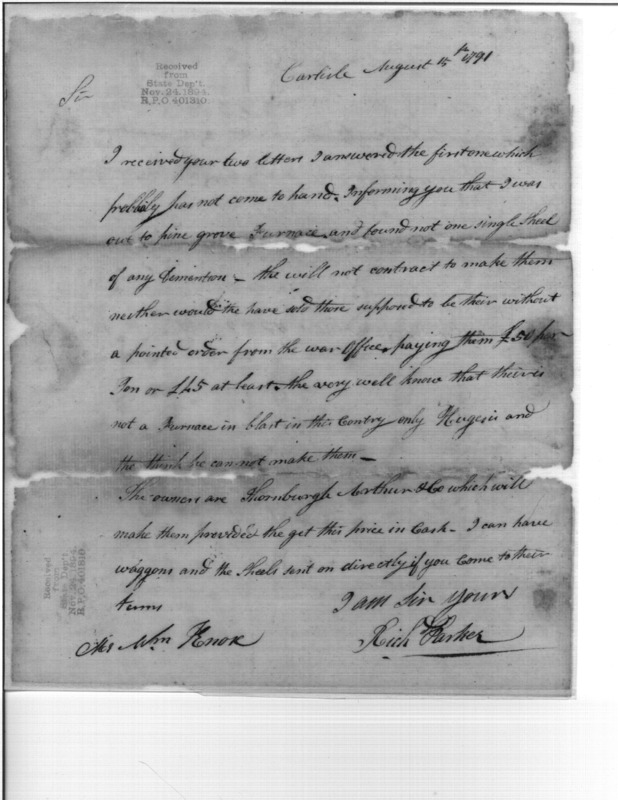 Received
from
State Dep't.
Nov. 24. 1894.
R.P.O 401310.
Carlisle August 15th 1791
Sir
I received your two letters I answered the first one which
probbily has not come to hand. Informing you that I was
out to pine grove Furnace and found not one single Shell
of any Demention - the will not contract to make them
neither would the have sold those supposed to be their without
a pointed order from the war Office, paying them £50 per
Ton or £45 at least. the very well know that their is
not a Furnace in blast in this Contry only Hugeses and
the think he can not make them -
The owners are Thornburgh Arthur & Co which will
make them provided the get this price in Cash - I can have
waggons and the Shells sent on directly if you Come to their
terms
I am Sir yours
Rich Parker
Mr Wm Knox
Received
from
State Dep't.
Nov. 24. 1894.
R.P.O 401310.